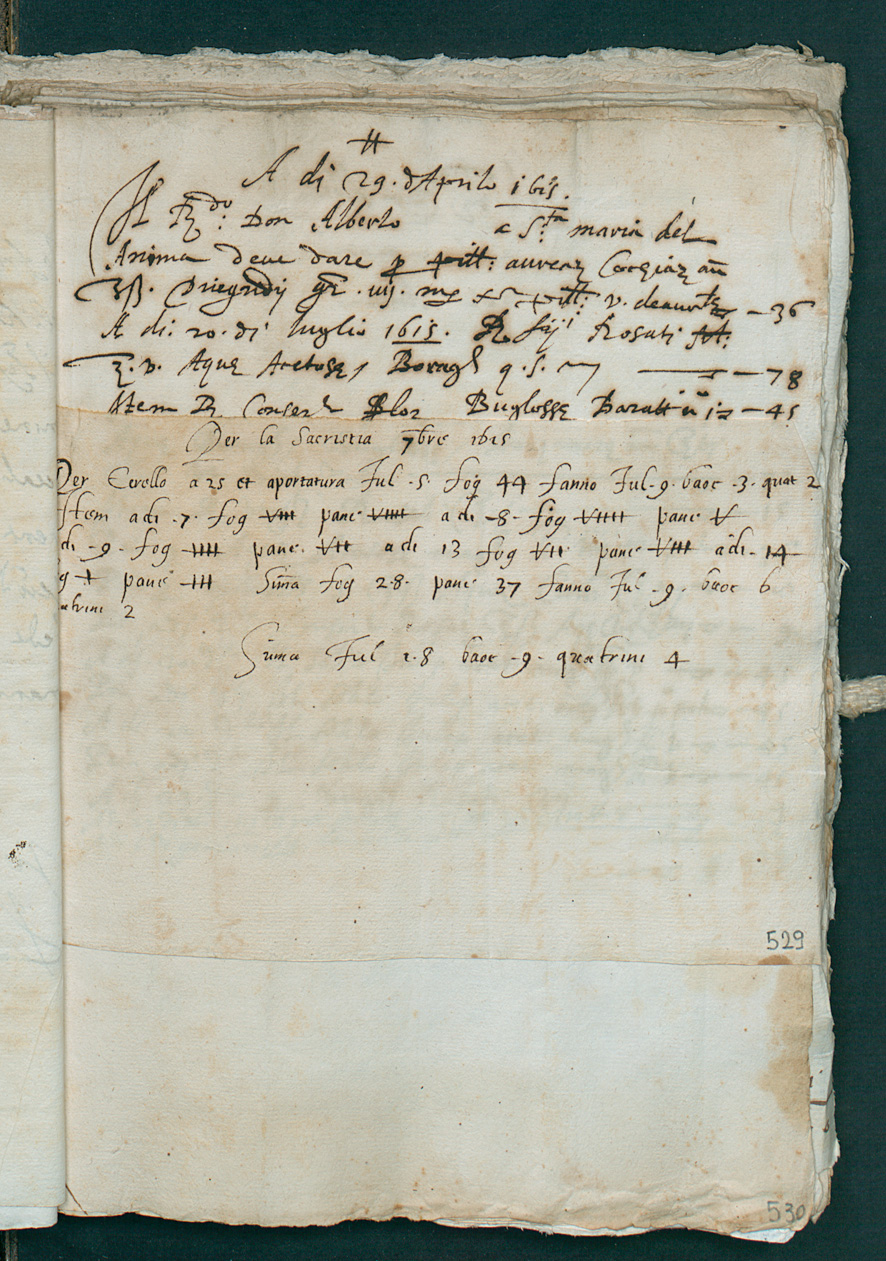 A di 29. d'Aprile 1615.
Il R.do: Don Alberto a S.ta maria del
Anima deve dare p aurear Cocciar añ
℥ß. Diegridij gr. iiij. v. deaurat — 36
A di. 20. di luglio 1615. R Sij Rosati
℥. v. Aquę Acetosę Borag q. s. — 78
Item R Conser flor Buglossę Baratt n 12 — 45
Per la Sacristia 7bre 1615
Per Cerello a 25 et aportatura Jul. 5. fog 44 fanno Jul. 9. baoc. 3. quat 2
Item adi. 7. fog VIII pane VIIII adi. 8. fog VIIII pane V
di. 9. fog IIII pane. VII adi 13 fog VII pane VIII adi. 14
g I pane III Suma fog 28. pane 37 fanno Jul. 9. baoc 6
atrini 2
Suma Jul 28 baoc. 9. quatrini 4
529
530